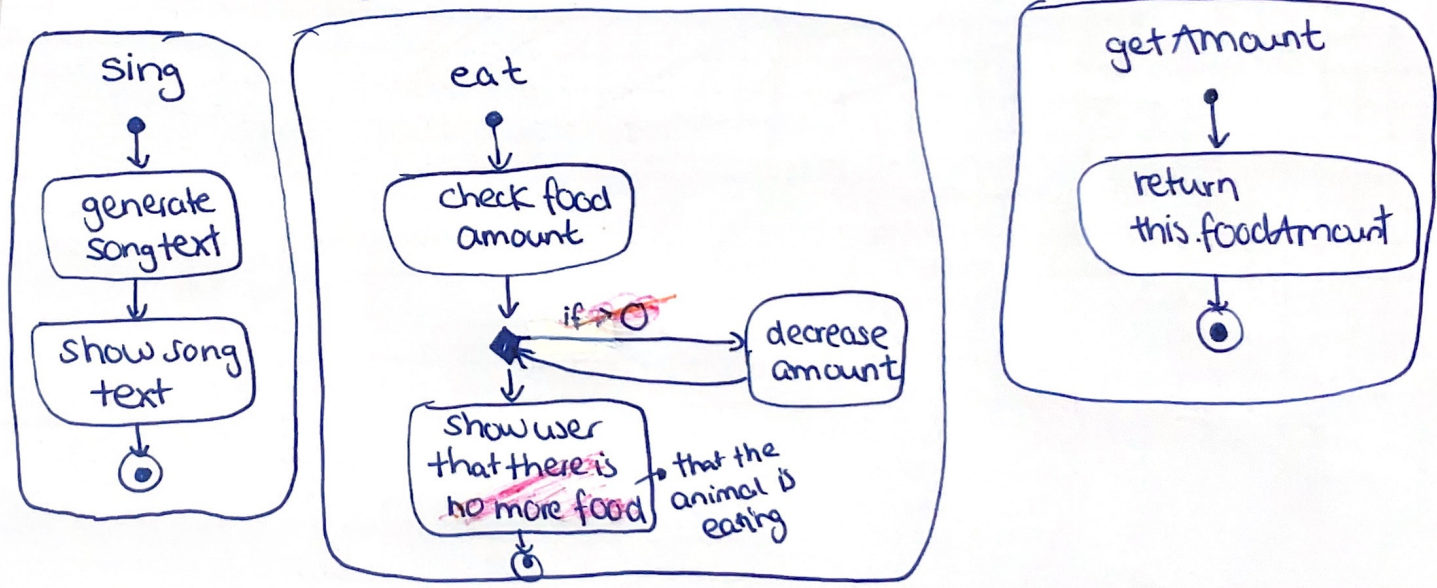 sing
generate
songtext
show song
text
eat
check food
amount
if > 0
decrease
amount
show user
that there is
no more food
that the
animal is
eating
getAmount
return
this.foodAmount